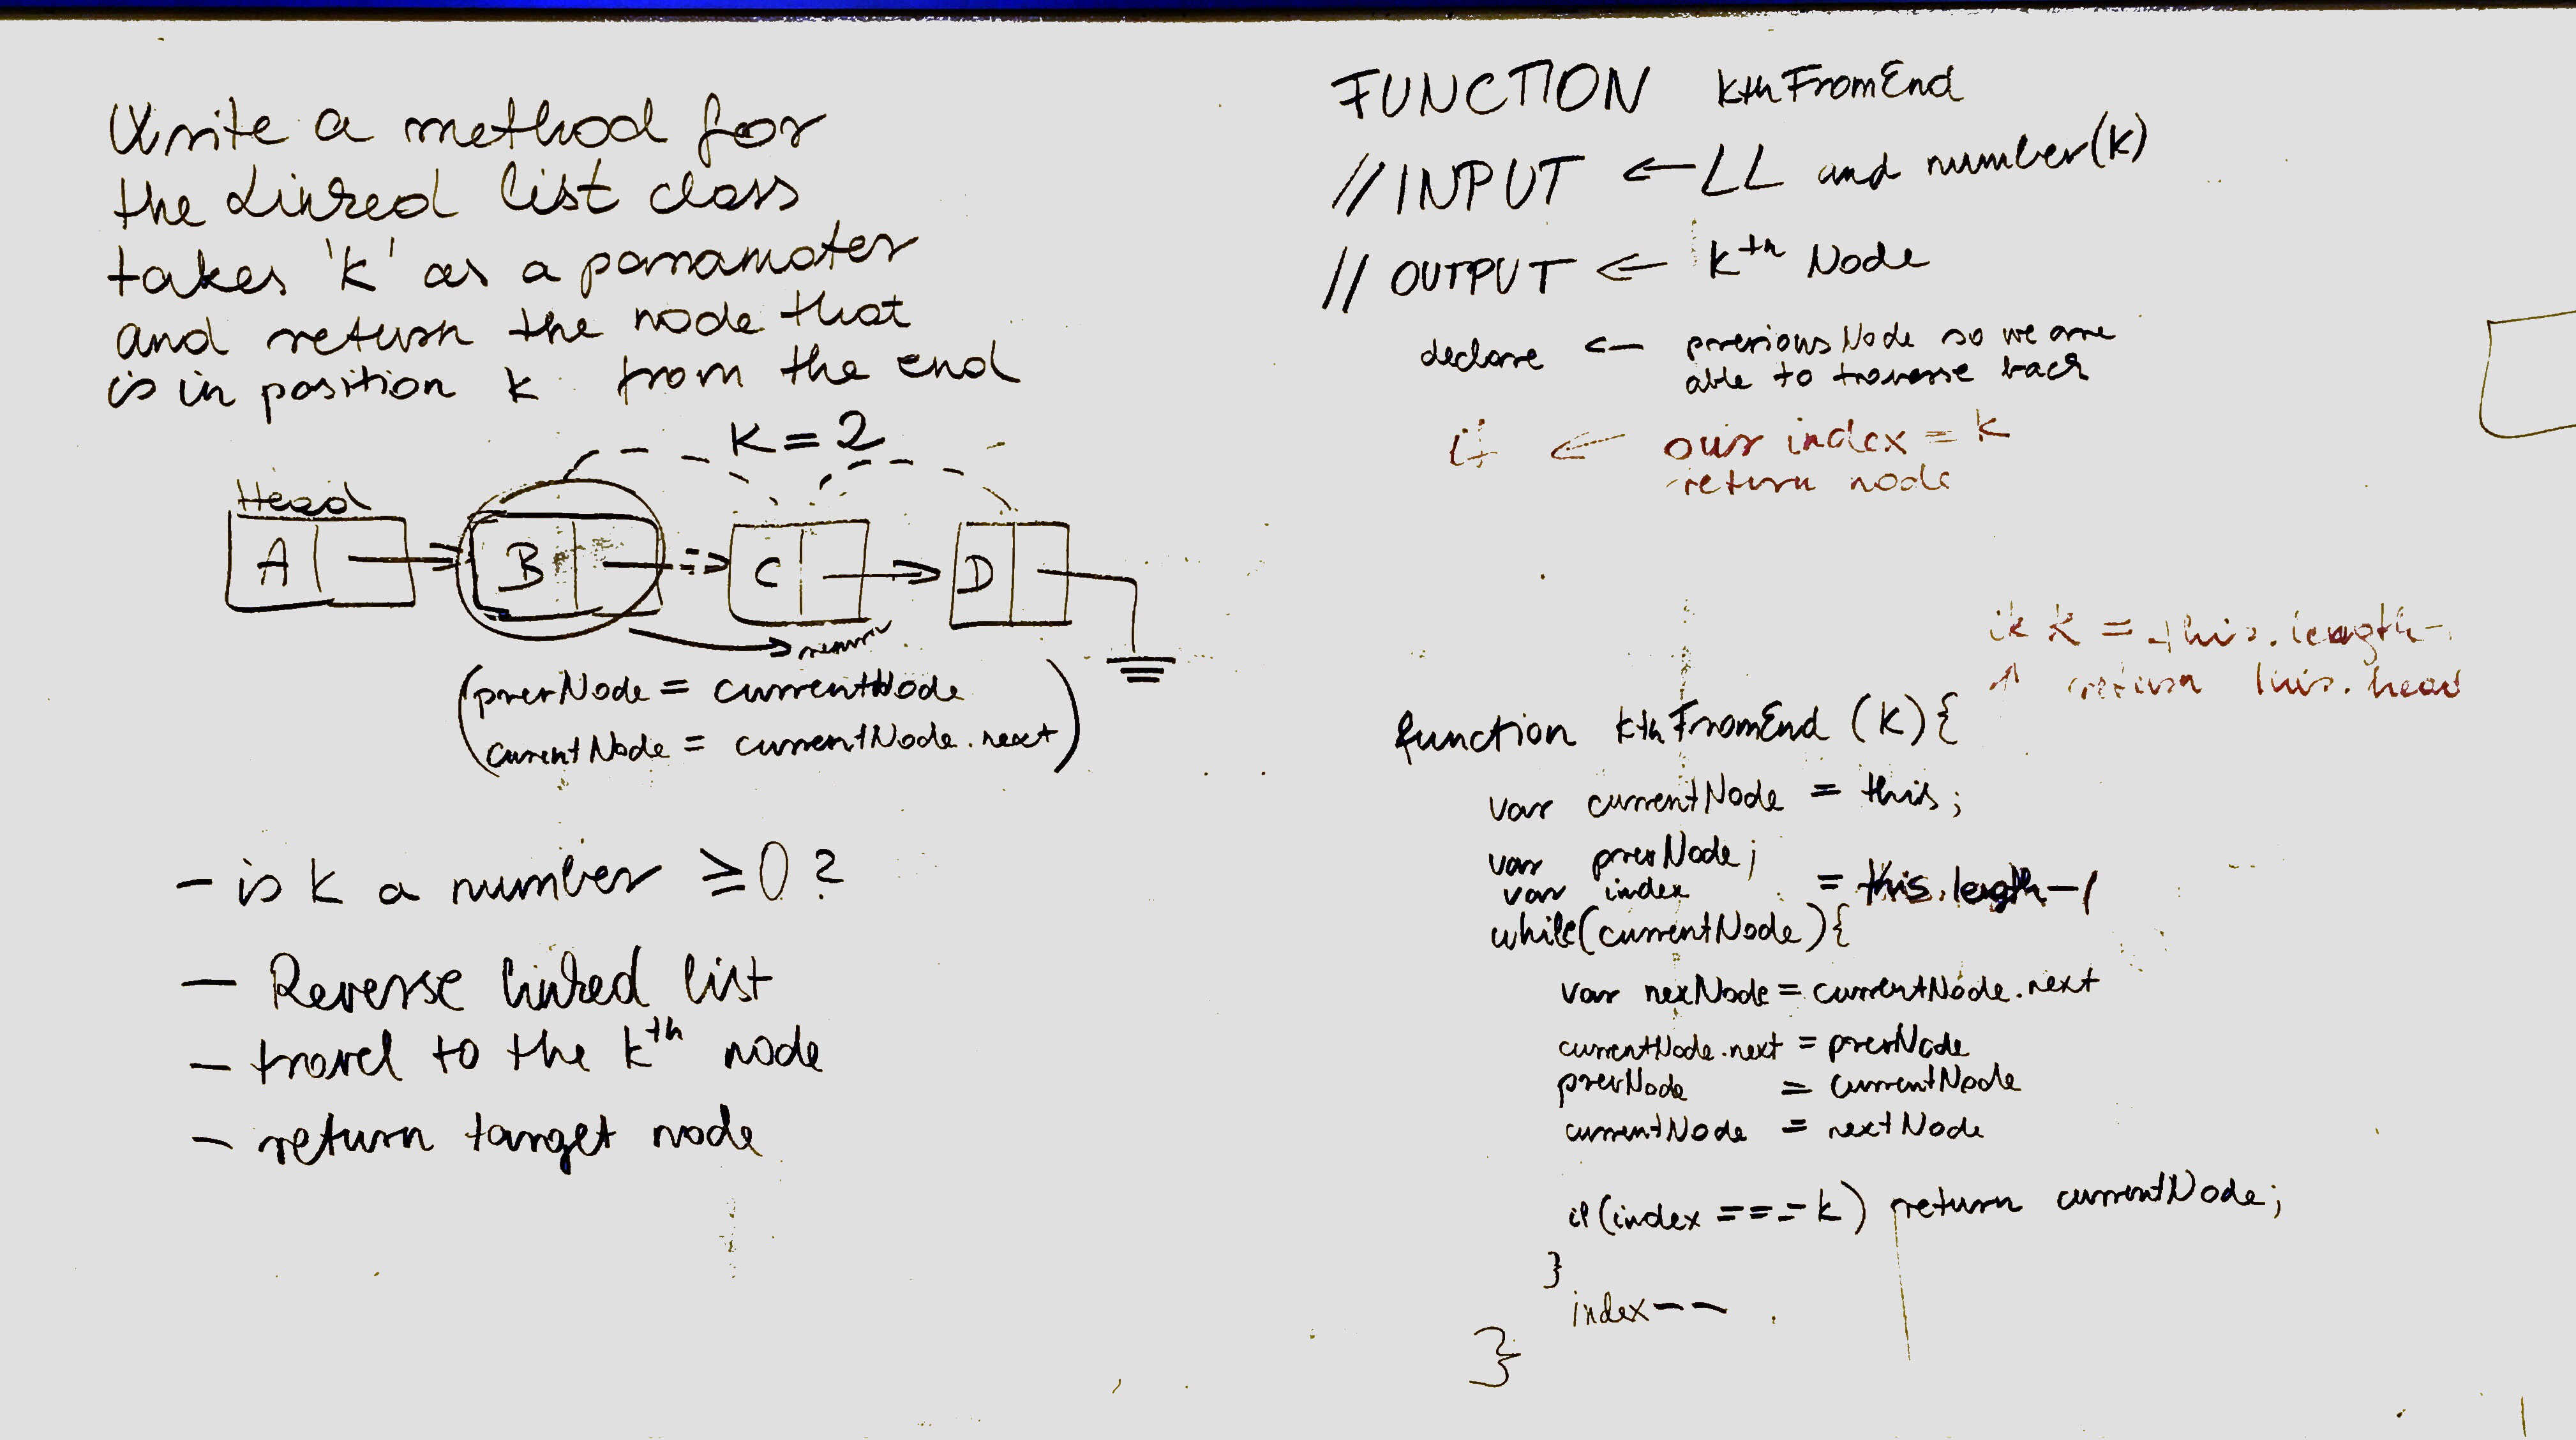 Write a method for
the Linked list class
takes 'k' as a paramater
and return the node that
is in position k from the end
K = 2
Head
A
B
C
D
return
(prevNode = currentNode
currentNode = currentNode.next)
- is k a number ≥ 0 ?
- Reverse linked list
- travel to the kth node
- return target node
FUNCTION kthFromEnd
// INPUT ← LL and number(k)
// OUTPUT ← kth Node
declare ← previousNode so we are
able to traverse back
if ← our index = k
return node
if k = this.length-
↑ return this.head
function kthFromEnd (k){
var currentNode = this;
var prevNode;
var index = this.length-1
while(currentNode){
var nexNode = currentNode.next
currentNode.next = prevNode
prevNode = currentNode
currentNode = nextNode
if(index === k) return currentNode;
}
index--
}